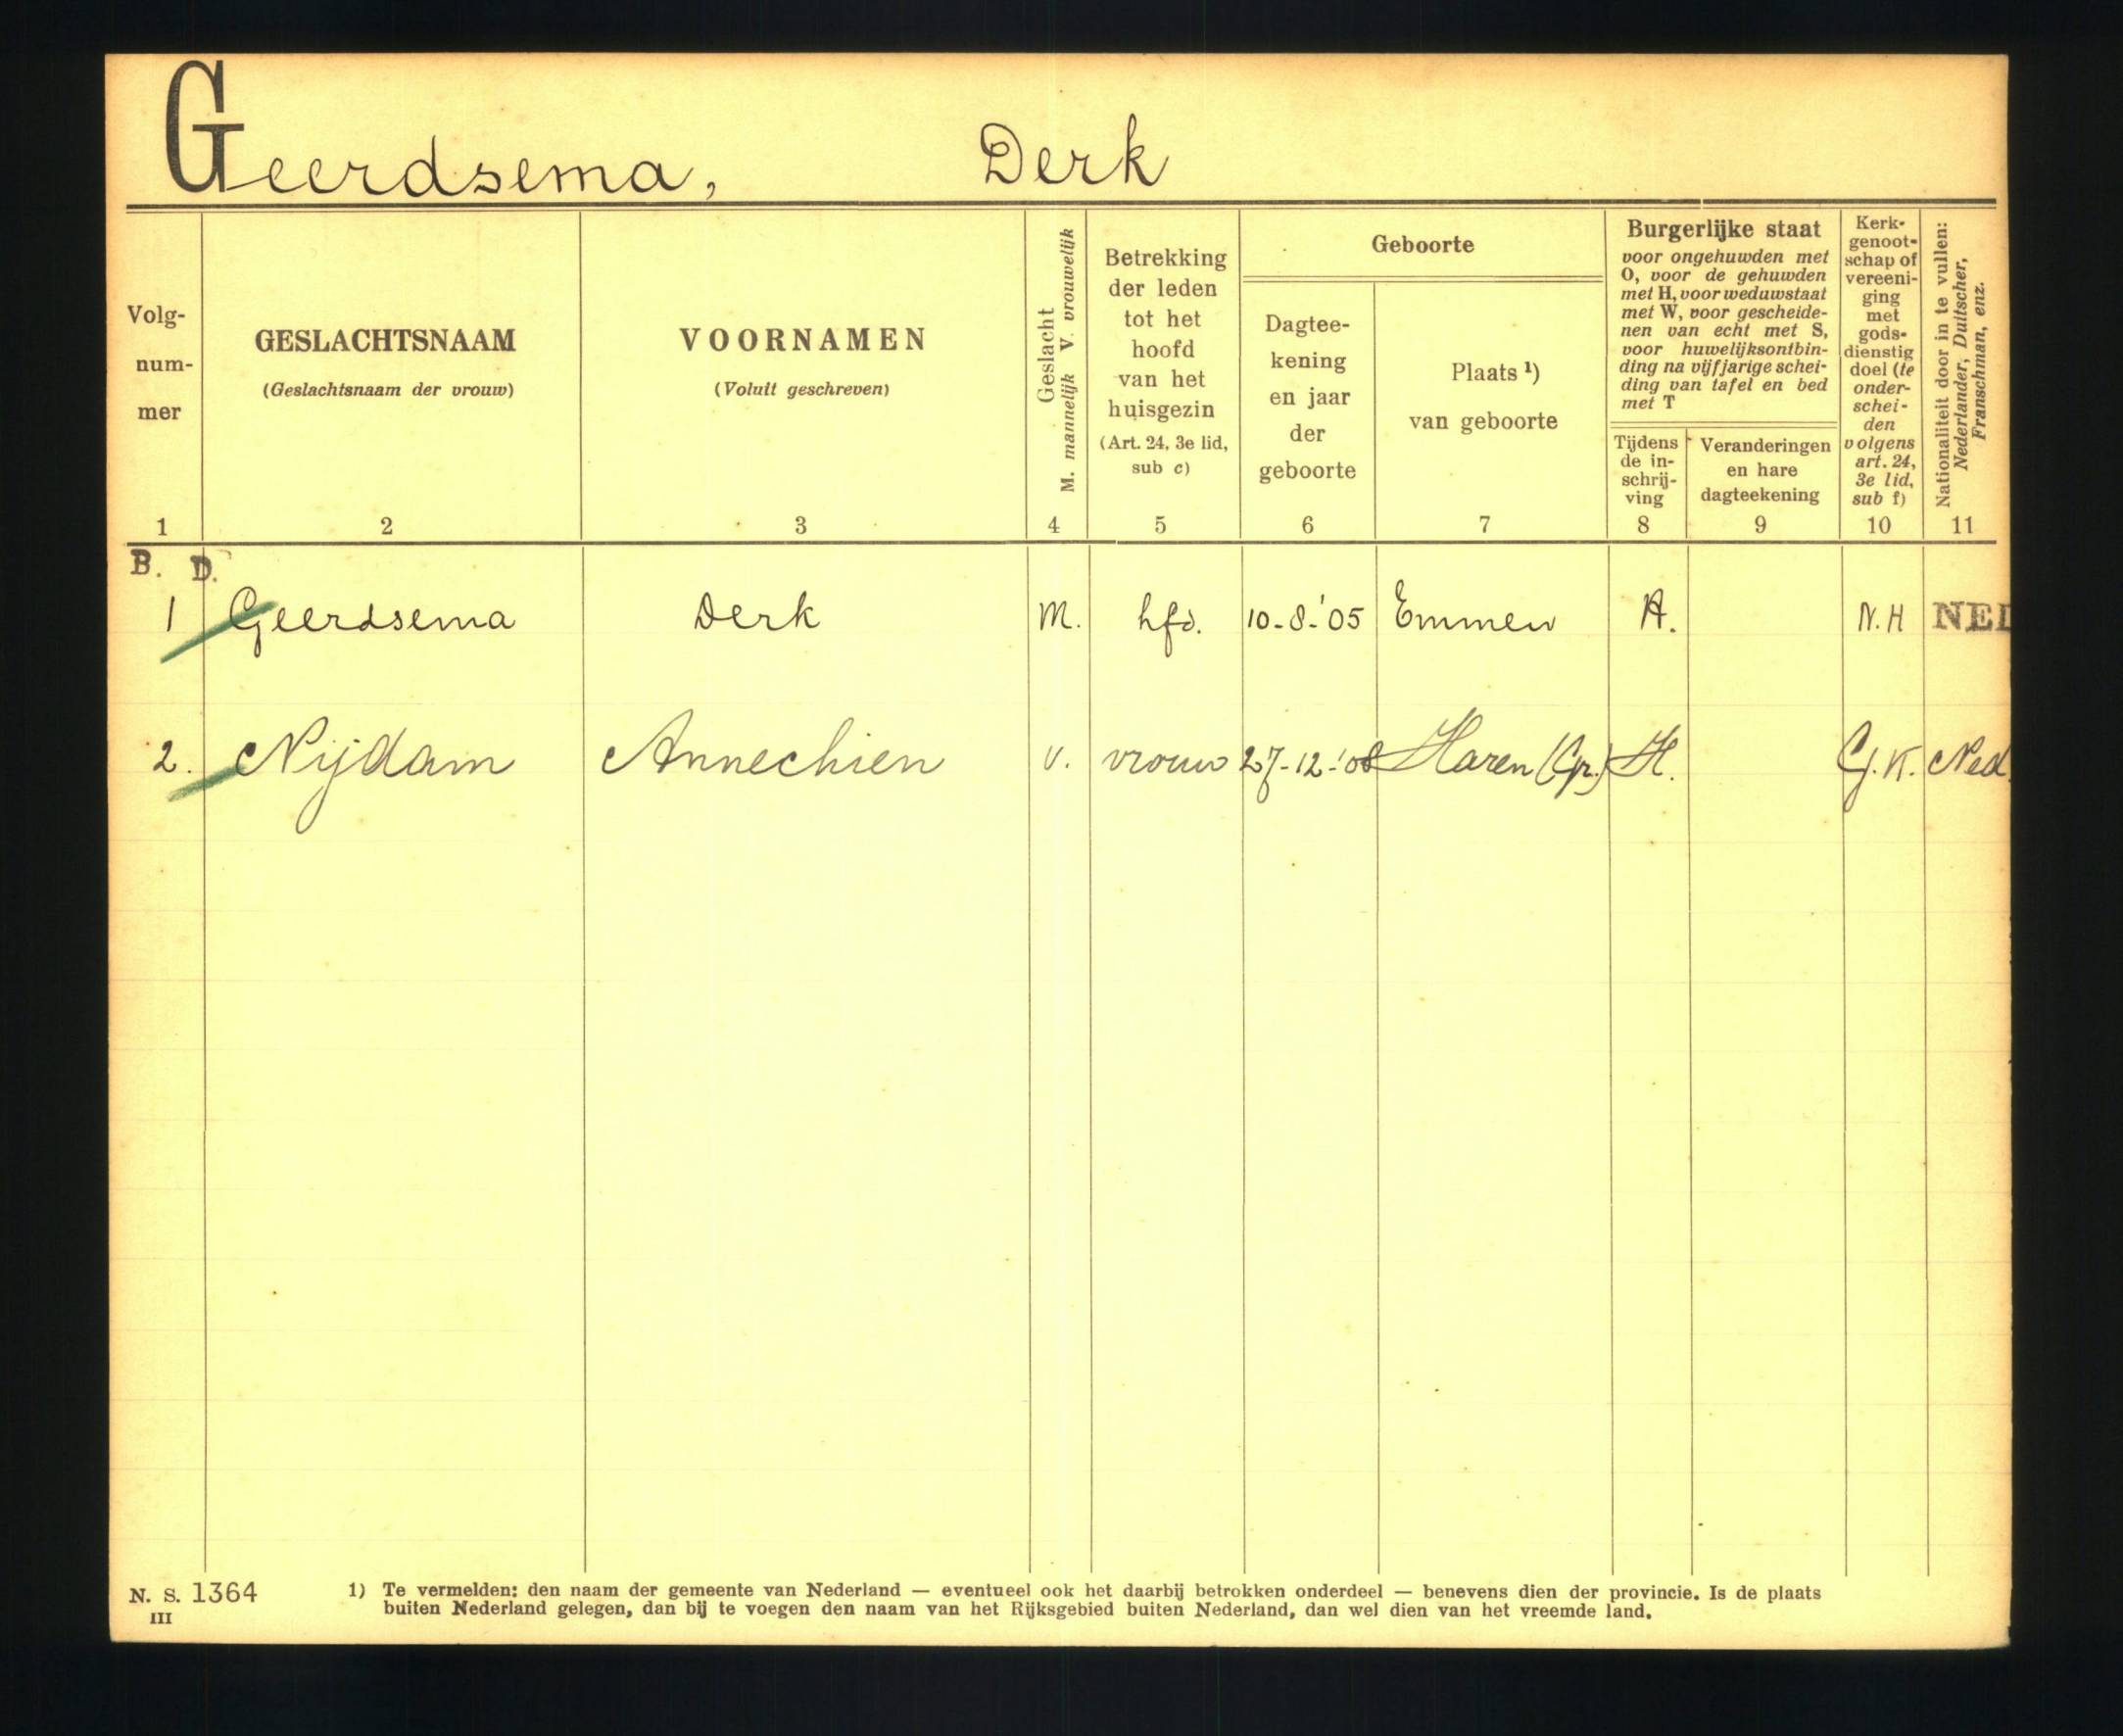 Geerdsema, Derk
Volg-
num-
mer
1
GESLACHTSNAAM
(Geslachtsnaam der vrouw)
2
VOORNAMEN
(Voluit geschreven)
3
Geslacht
M. mannelijk V. vrouwelijk
4
Betrekking
der leden
tot het
hoofd
van het
huisgezin
(Art. 24, 3e lid,
sub c)
5
Geboorte
Dagtee-
kening
en jaar
der
geboorte
6
Plaats ¹)
van geboorte
7
Burgerlijke staat
voor ongehuwden met
O, voor de gehuwden
met H, voor weduwstaat
met W, voor gescheide-
nen van echt met S,
voor huwelijksontbin-
ding na vijfjarige schei-
ding van tafel en bed
met T
Tijdens
de in-
schrij-
ving
8
Veranderingen
en hare
dagteekening
9
Kerk-
genoot-
schap of
vereeni-
ging
met
gods-
dienstig
doel (te
onder-
schei-
den
volgens
art. 24,
3e lid,
sub f)
10
Nationaliteit door in te vullen:
Nederlander, Duitscher,
Franschman, enz.
11
B. D.
1 Geerdsema Derk M. hfd. 10-8-'05 Emmen H. N.H NED
2. Nijdam Annechien v. vrouw 27-12-'08 Haren (Gr.) H. G.K. Ned.
N. S. 1364
III
1) Te vermelden: den naam der gemeente van Nederland — eventueel ook het daarbij betrokken onderdeel — benevens dien der provincie. Is de plaats
buiten Nederland gelegen, dan bij te voegen den naam van het Rijksgebied buiten Nederland, dan wel dien van het vreemde land.